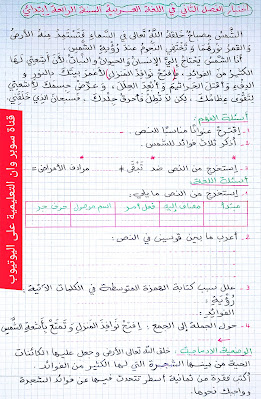 اختبار الفصل الثاني في اللغة العربية السنة الرابعة ابتدائي
الشَّمْسُ مِصْبَاحٌ خَلَقَهُ اللَّهُ تَعَالَى فِي السَّمَاءِ فَتَسْتَمِدُّ مِنْهُ الأَرْضُ
وَ القَمَرُ نُورَهُمَا وَ تَخْتَفِي النُّجُومُ عِنْدَ رُؤْيَةِ الشَّمْسِ.
إِنَّ الشَّمْسَ يَحْتَاجُ إِلَيْهَا الإِنْسَانُ وَ الحَيَوَانُ وَ النَّبَاتُ لأَنَّ أَشِعَّتَهَا لَهَا
الكَثِيرُ مِنَ الفَوَائِدِ، (افْتَحْ نَوَافِذَ المَنْزِلِ) لِأَعْمُرَ بَيْتَكَ بِالنُّورِ وَ
الدِّفْءِ وَ أَقْتُلَ الجَرَاثِيمَ وَ أُبْعِدَ العِلَلَ، وَ عَرِّضْ جِسْمَكَ لِأَشِعَّتِي
لِتَقْوَى عِظَامُكَ، لَكِنْ لَا تُطِلْ فَأَحْرِقَ جِلْدَكَ. فَسُبْحَانَ الَّذِي خَلَقَنِي.
أسئلة الفهم:
1 - إقترح عنوانا مناسبا للنص.
2 - أذكر ثلاث فوائد للشمس.
3 - إستخرج من النص ضد تَبْقَى ≠ مرادف الأمراض =
أسئلة اللغة:
1 - إستخرج من النص ما يلي:
مبتدأ | مضاف إليه | فعل أمر | اسم موصول | حرف جر
2 - أعرب ما بين قوسين في النص:
3 - علل سبب كتابة الهمزة المتوسطة في الكلمات الآتية:
رُؤْيَةِ:
الفَوَائِدِ:
4 - حول الجملة إلى الجمع: إفْتَحْ نَوَافِذَ المَنْزِلِ وَ تَمَتَّعْ بِأَشِعَّةِ الشَّمْسِ
الوضعية الإدماجية: خلق الله تعالى الأرض و جعل عليها الكائنات
الحية من بينها الشجيرة التي لها الكثير من الفوائد.
أكتب فقرة من ثمانية أسطر تتحدث فيها عن فوائد الشجرة
و واجبك نحوها.
قناة سوبر وان التعليمية على اليوتيوب